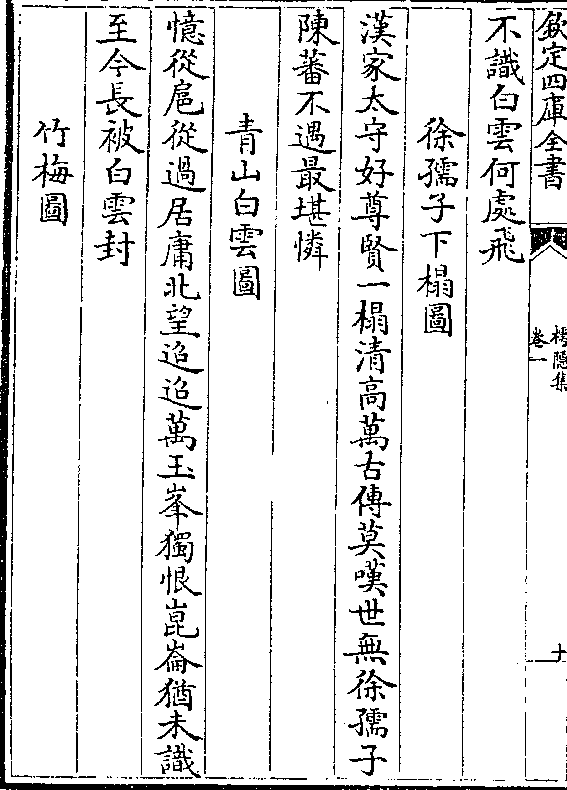 欽定四庫全書
樗隱集
卷一
十
不識白雲何處飛
徐孺子下榻圖
漢家太守好尊賢一榻清高萬古傳莫嘆世無徐孺子
陳蕃不遇最堪憐
青山白雲圖
憶從扈從過居庸北望迢迢萬玉峯獨恨崑崙猶未識
至今長被白雲封
竹梅圖